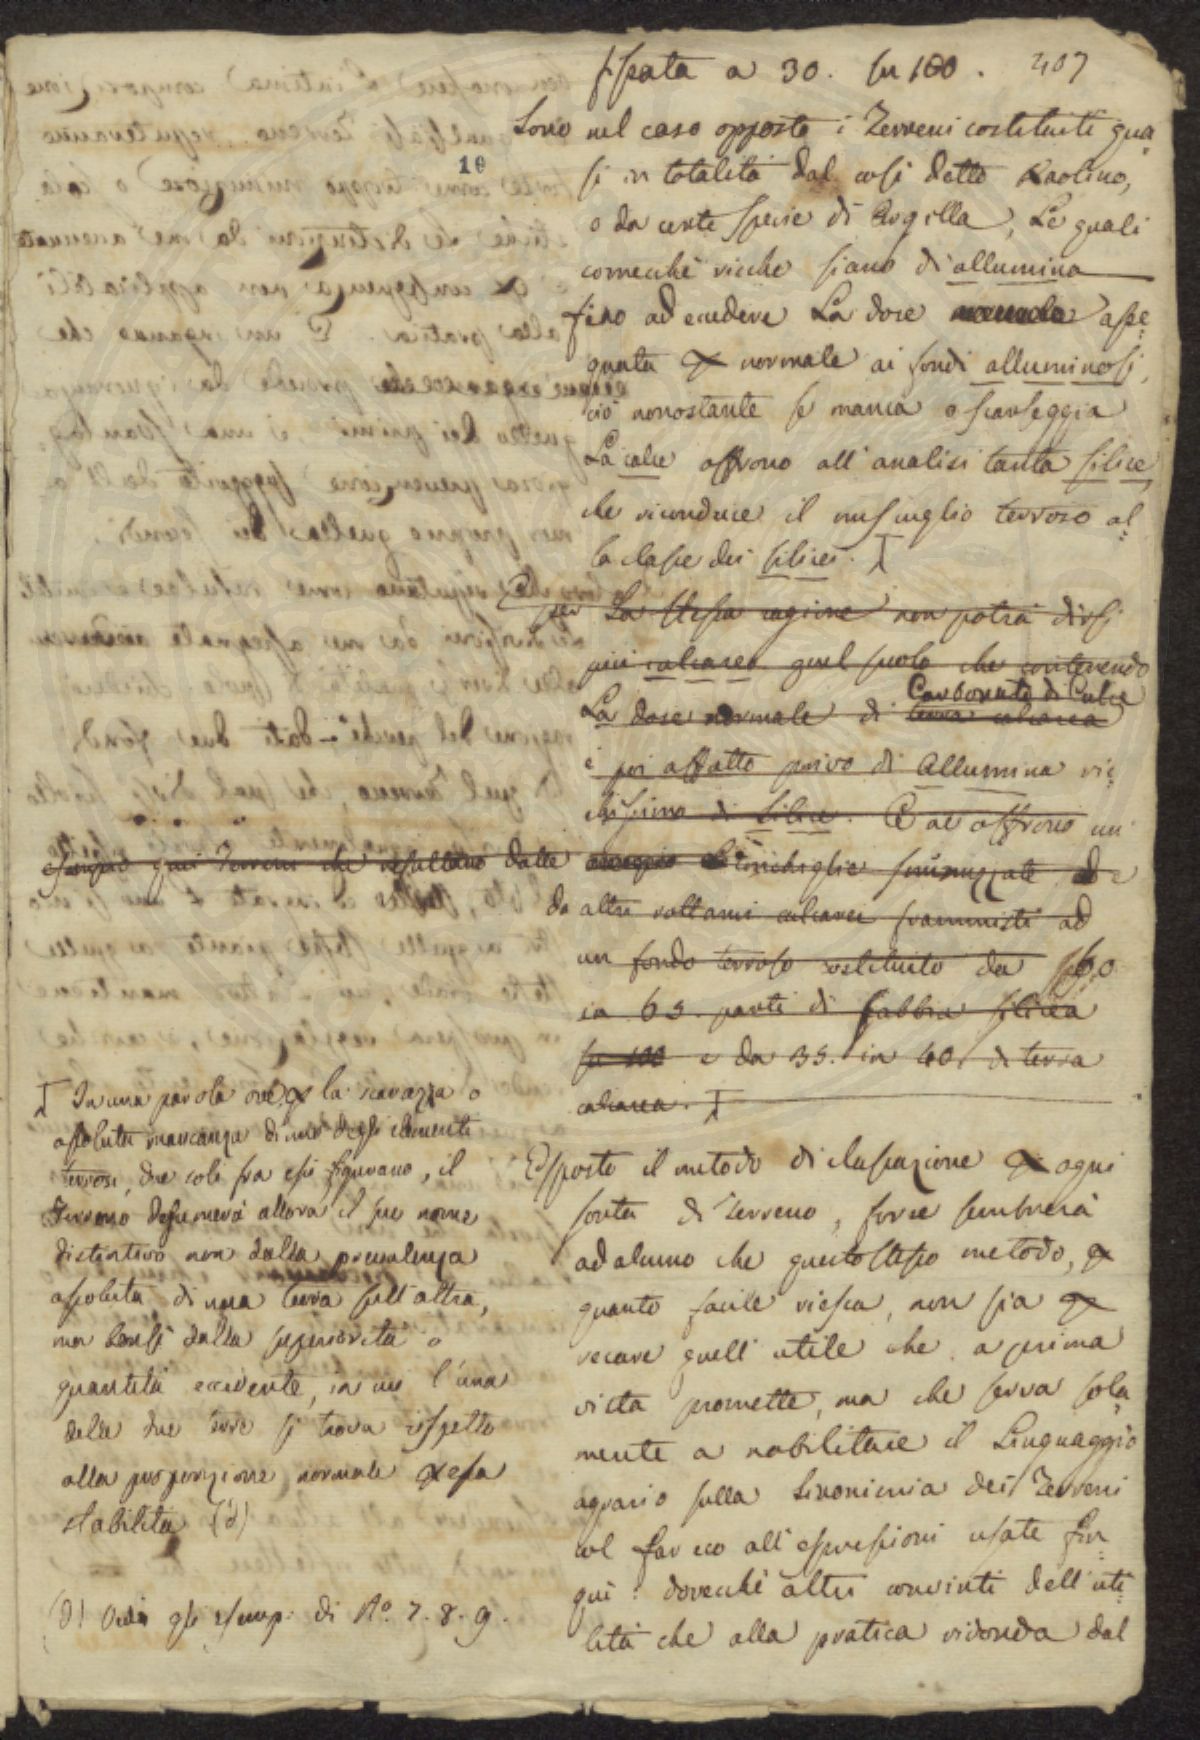 fissata a 30. su 100. 407
19
Sono nel caso opposto i Terreni costituiti qua=
si in totalità dal così detto Kaolino,
o da certe specie di Argilla, Le quali
comecchè ricche siano di allumina
fino ad eccedere La dose asse=
gnata per normale ai fondi alluminosi,
ciò nonostante se manca o scarseggia
La calce offrono all'analisi tanta silice,
che riconduce il miscuglio terroso al=
la classe dei silicei. I
per La stessa cagione non potrà dirsi
più calcareo quel suolo che contenendo
La dose normale di terra calcarea Carbonato di Calce
è poi affatto privo di Allumina ric=
chissimo di Silice. E ne offrono un
esempio quei Terreni che resultano dalle conchiglie sminuzzate e
da altri rottami calcarei frammisti ad
un fondo terroso costituito da 60
in 65. parti di sabbia silicea
su 100 e da 35. in 40. di terra
calcarea. I
Esposto il metodo di classazione per ogni
sorta di Terreno, forse sembrerà
ad alcuno che questo stesso metodo, per
quanto facile riesca, non sia per
recare quell'utile che a prima
vista promette, ma che serva sola=
mente a nobilitare il Linguaggio
agrario sulla Sinonimia dei Terreni
col far eco all'espressioni usate fin=
qui: dovecchè altri convinti dell'uti=
lità che alla pratica ridonda dal
I In una parola ove per la scarezza o
assoluta mancanza di uno degli elementi
terrosi, due soli fra essi figurano, il
Terreno desumerà allora il suo nome
distintivo non dalla prevalenza
assoluta di una terra sull'altra,
ma bensì dalla superiorità o
quantità eccedente, in cui l'una
delle due terre si trova rispetto
alla proporzione normale per essa
stabilita (d)
(d) Vedi gli esemp. di No. 7. 8. 9.